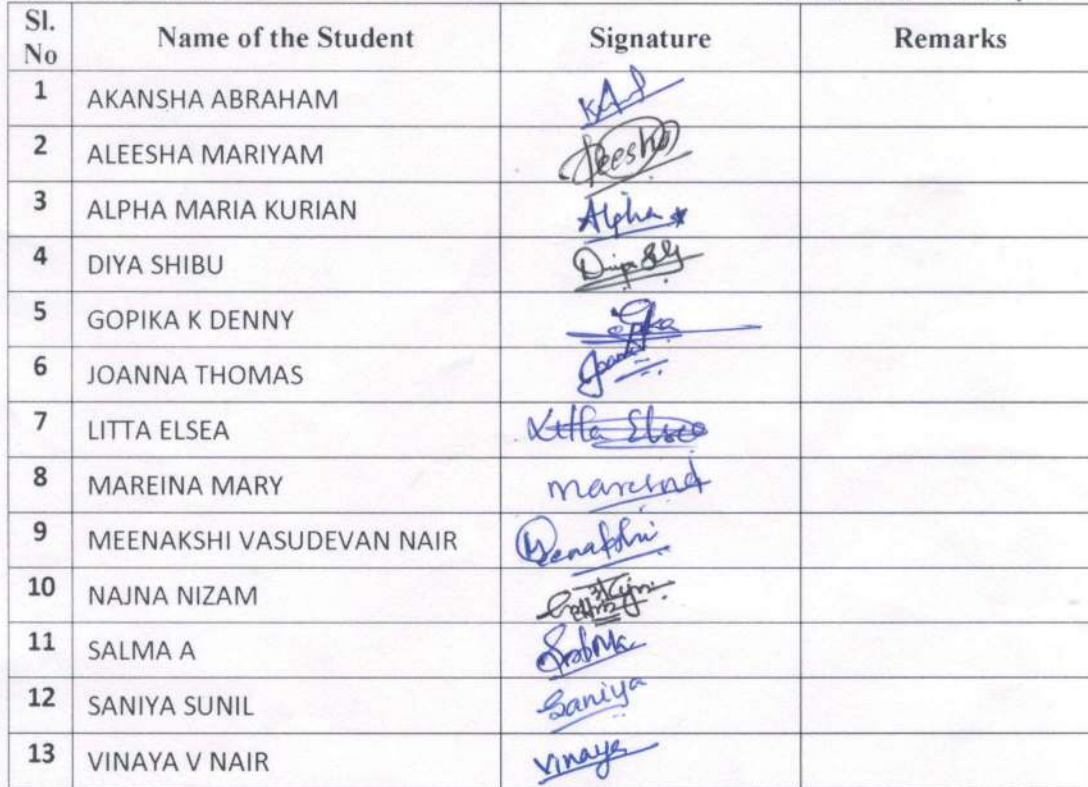 Sl. No Name of the Student Signature Remarks
1 AKANSHA ABRAHAM
2 ALEESHA MARIYAM
3 ALPHA MARIA KURIAN Alpha
4 DIYA SHIBU Diya
5 GOPIKA K DENNY
6 JOANNA THOMAS
7 LITTA ELSEA Litta Elsea
8 MAREINA MARY mareina
9 MEENAKSHI VASUDEVAN NAIR Meenakshi
10 NAJNA NIZAM
11 SALMA A
12 SANIYA SUNIL Saniya
13 VINAYA V NAIR Vinaya